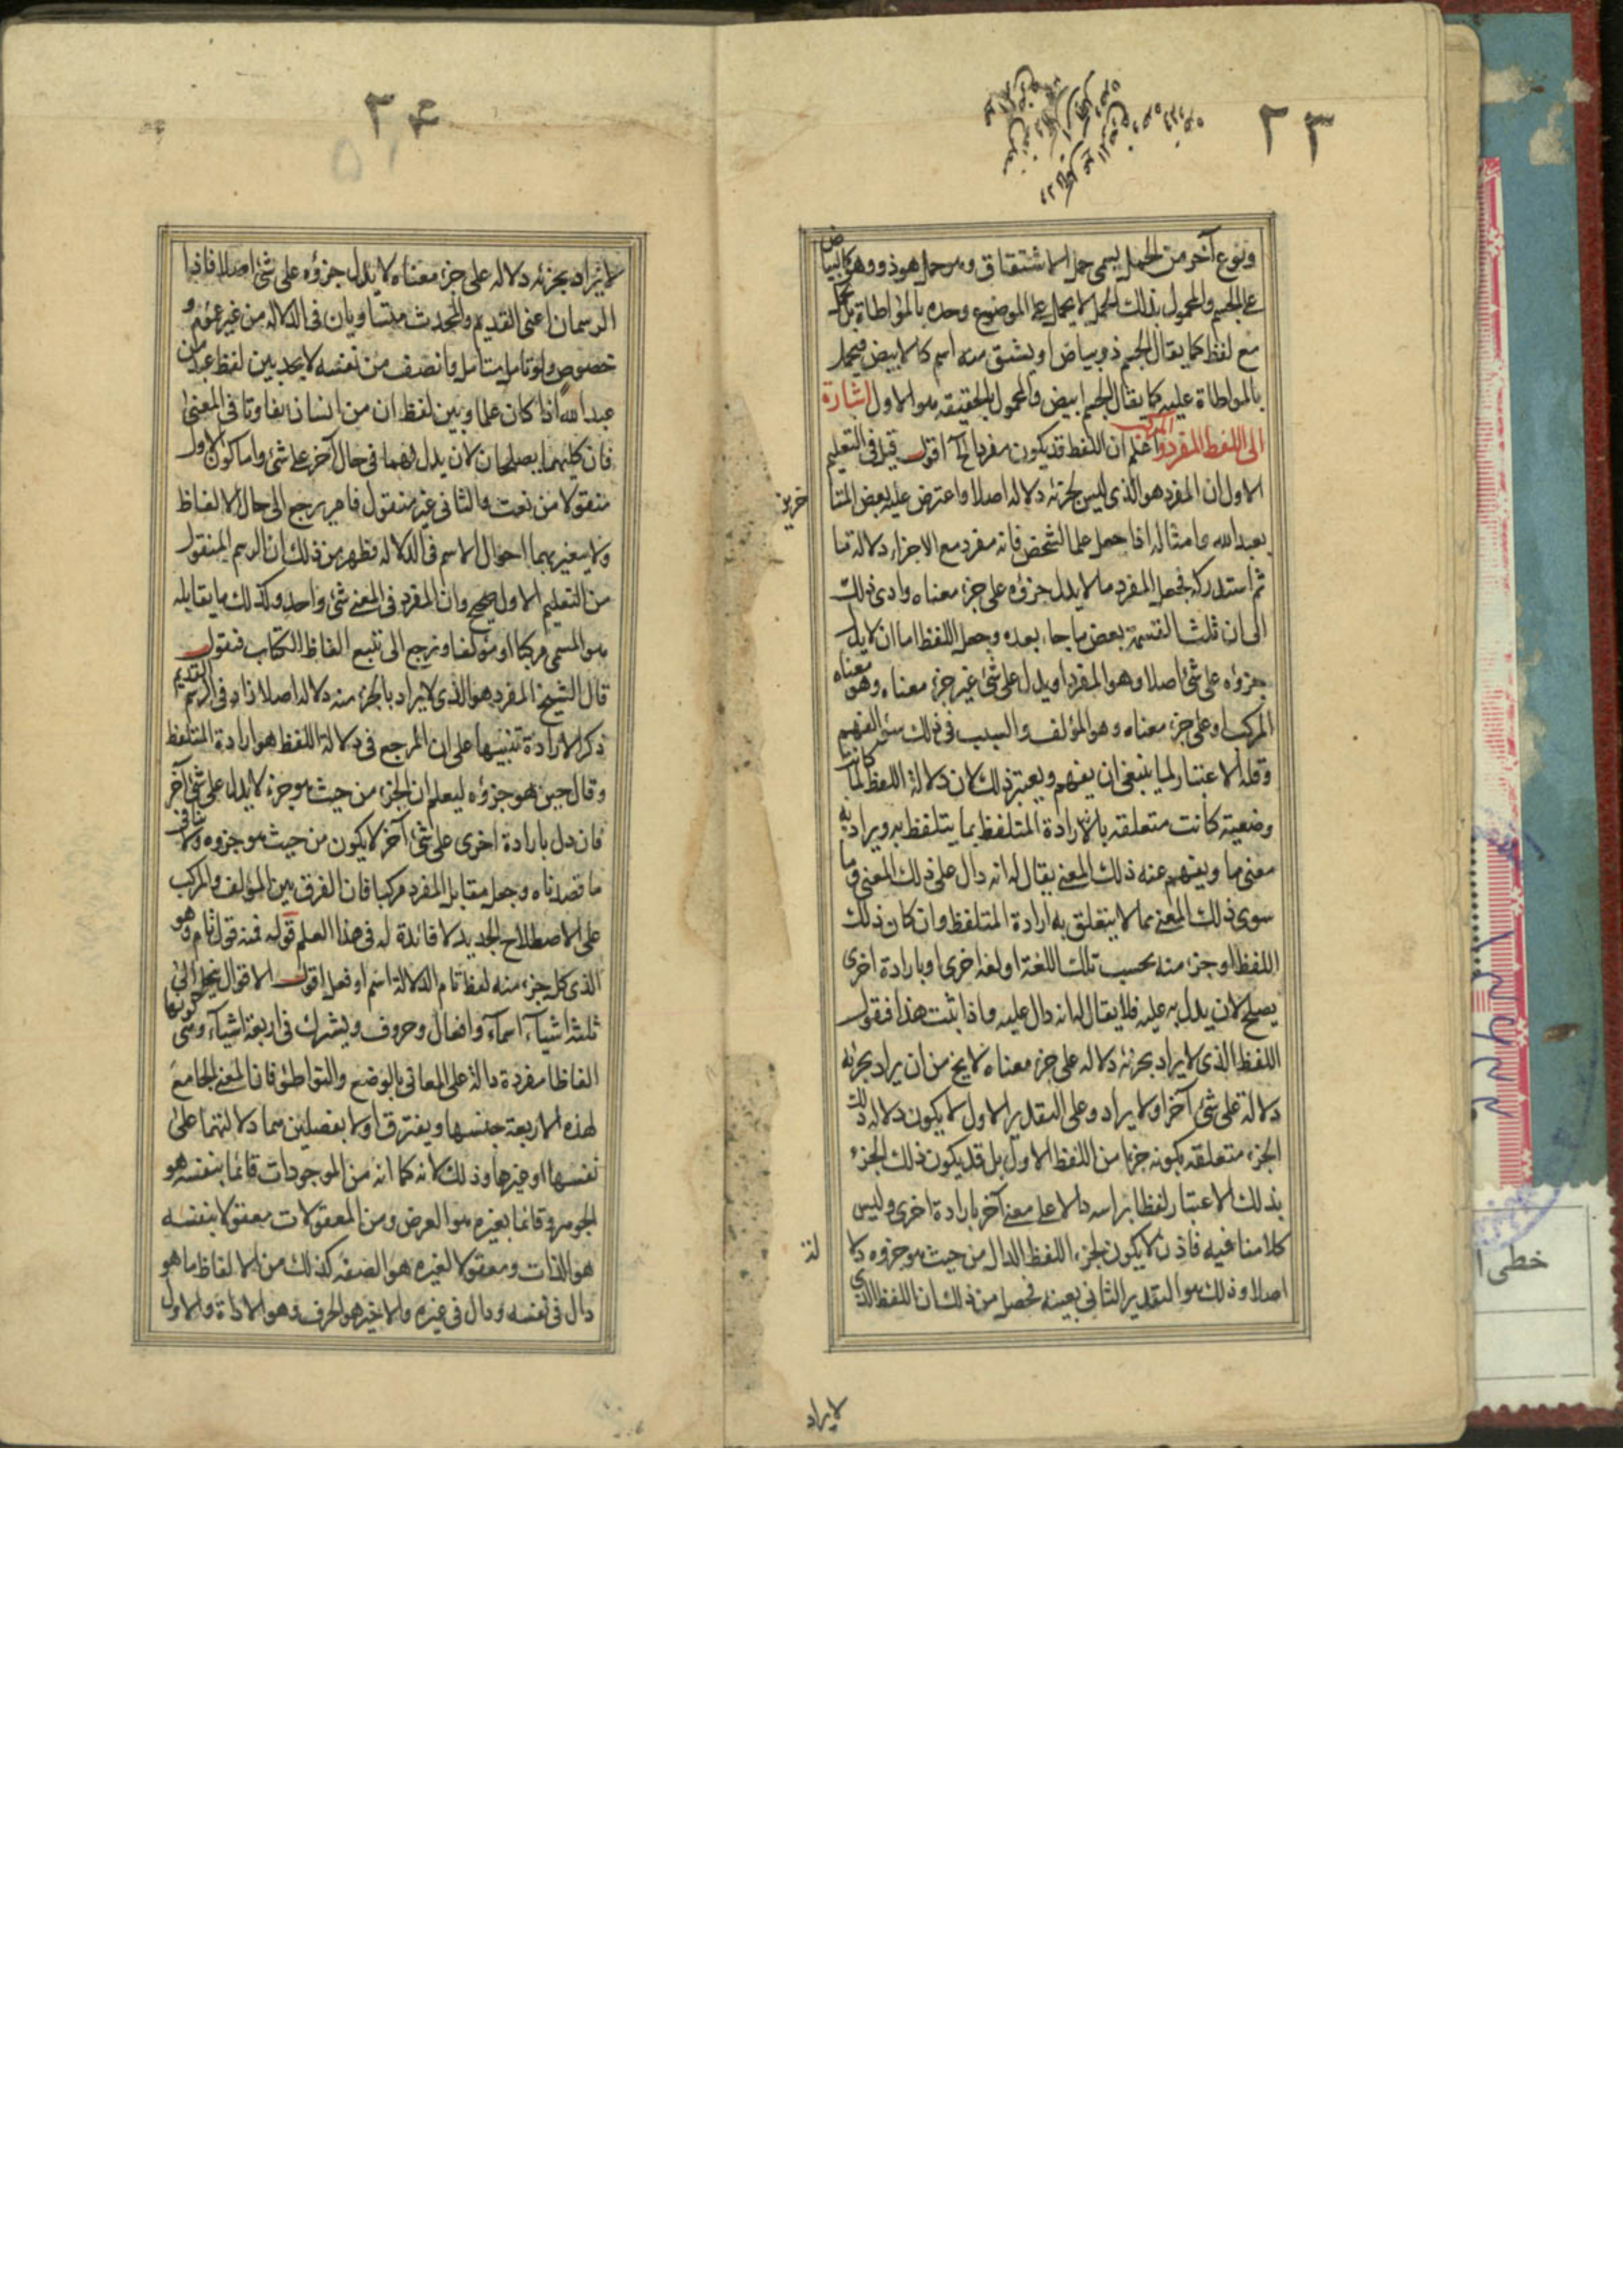 ٢٣
ونوع آخر من الحمل يسمى حمل الاشتقاق وهو حمل هو ذو وهو كالبياض
على الجسم والمحمول بذلك الحمل لا يحمل على الموضوع وحده بالمواطاة بل يحمل
مع لفظ كما يقال الجسم ذو بياض او يشتق منه اسم كالابيض فيحمل
بالمواطاة عليه كما يقال الجسم ابيض والمحمول بالحقيقة هو الاول اشارة
الى اللفظ المفرد والمركب اعلم ان اللفظ قد يكون مفردا الخ اقول قيل في التعليم
الاول ان المفرد هو الذي ليس لجزئه دلالة اصلا واعترض عليه بعض المتأ
خرين
بعبد الله وامثاله اذا جعل علما لشخص فانه مفرد مع الاجزاء دلالة ما
ثم استدركه فجعل المفرد ما لا يدل جزؤه على جزء معناه وادى ذلك
الى ان ثلث القسمة بعض ما جاء بعده وجعل اللفظ اما ان لا يدل
جزؤه على شئ اصلا وهو المفرد او يدل على شئ غير جزء معناه وهو
المركب او على جزء معناه وهو المؤلف والسبب في ذلك سوء الفهم
وقلة الاعتبار لما ينبغي ان يفهم ويعتبر ذلك لان دلالة اللفظ لما كانت
وضعية كانت متعلقة بالارادة المتلفظ بما يتلفظ به ويراد به
معنى ما ويفهم عنه ذلك المعنى يقال له انه دال على ذلك المعنى وما
سوى ذلك المعنى مما لا يتعلق به ارادة المتلفظ وان كان ذلك
اللفظ او جزء منه بحسب تلك اللغة او لغة اخرى او بارادة اخرى
يصلح لان يدل به عليه فلا يقال له انه دال عليه واذا ثبت هذا فنقول
اللفظ الذي لا يراد بجزئه دلالة على جزء معناه لا يخ من ان يراد بجزئه
دلالة على شئ آخر او لا يراد وعلى التقدير الاول لا يكون دلالة ذلك
الجزء متعلقة بكونه جزءا من اللفظ الاول بل قد يكون ذلك الجزء
بذلك الاعتبار لفظا براسه دالا على معنى آخر بارادة اخرى وليس
كلامنا فيه فاذن لا يكون لجزء اللفظ الدال من حيث هو جزؤه دلا
لة
اصلا وذلك هو التقدير الثاني بعينه فحصل من ذلك ان اللفظ الذي
لا يراد
٢٤
لا يراد بجزئه دلالة على جزء معناه لا يدل جزؤه على شئ اصلا فاذا
الرسمان اعنى القديم والمحدث متساويان في الدلالة من غير عموم و
خصوص ولو تامل متامل وانصف من نفسه لا يجد بين لفظ عبد من
عبد الله اذا كان علما وبين لفظ ان من انسان تفاوتا في المعنى
فان كليهما يصلحان لان يدل بهما في حال آخر على شئ واما كون الاول
منقولا من نعت والثاني غير منقول فامر يرجع الى حال الالفاظ
ولا يتغير بهما احوال الاسم في الدلالة فظهر من ذلك ان الرسم المنقول
من التعليم الاول صحيح وان المفرد في المعنى شئ واحد وكذلك ما يقابله
هو المسمى مركبا او مؤلفا ونرجع الى تتبع الفاظ الكتاب فنقول
قال الشيخ المفرد هو الذي لا يراد بالجزء منه دلالة اصلا زاد في الرسم القديم
ذكر الارادة تنبيها على ان المرجع في دلالة اللفظ هو ارادة المتلفظ
وقال حين هو جزؤه ليعلم ان الجزء من حيث هو جزء لا يدل على شئ آخر
فان دل بارادة اخرى على شئ آخر لا يكون من حيث هو جزوه ولا ينافي
ما قصدناه وجعل مقابل المفرد مركبا فان الفرق بين المؤلف والمركب
على الاصطلاح الجديد لا فائدة له في هذا العلم قوله فمنه قول تام وهو
الذي كل جزء منه لفظ تام الدلالة اسم او فعل اقول الاقوال ينحل الى
ثلثة اشياء اسماء وافعال وحروف ويشترك في اربعة اشياء وهي كونها
الفاظا مفردة دالة على المعاني بالوضع والتواطئ فان المعنى الجامع
لهذه الاربعة جنسها ويفترق اولا بفصلين هما دلالتهما على
نفسها او غيرها وذلك لانه كما انه من الموجودات قائما بنفسه هو
الجوهر وقائما بغيره هو العرض ومن المعقولات معقولا بنفسه
هو الذات ومعقولا لغيره هو الصفة كذلك من الالفاظ ما هو
دال في نفسه ودال في غيره والاخير هو الحرف وهو الاداة والاول
خطى